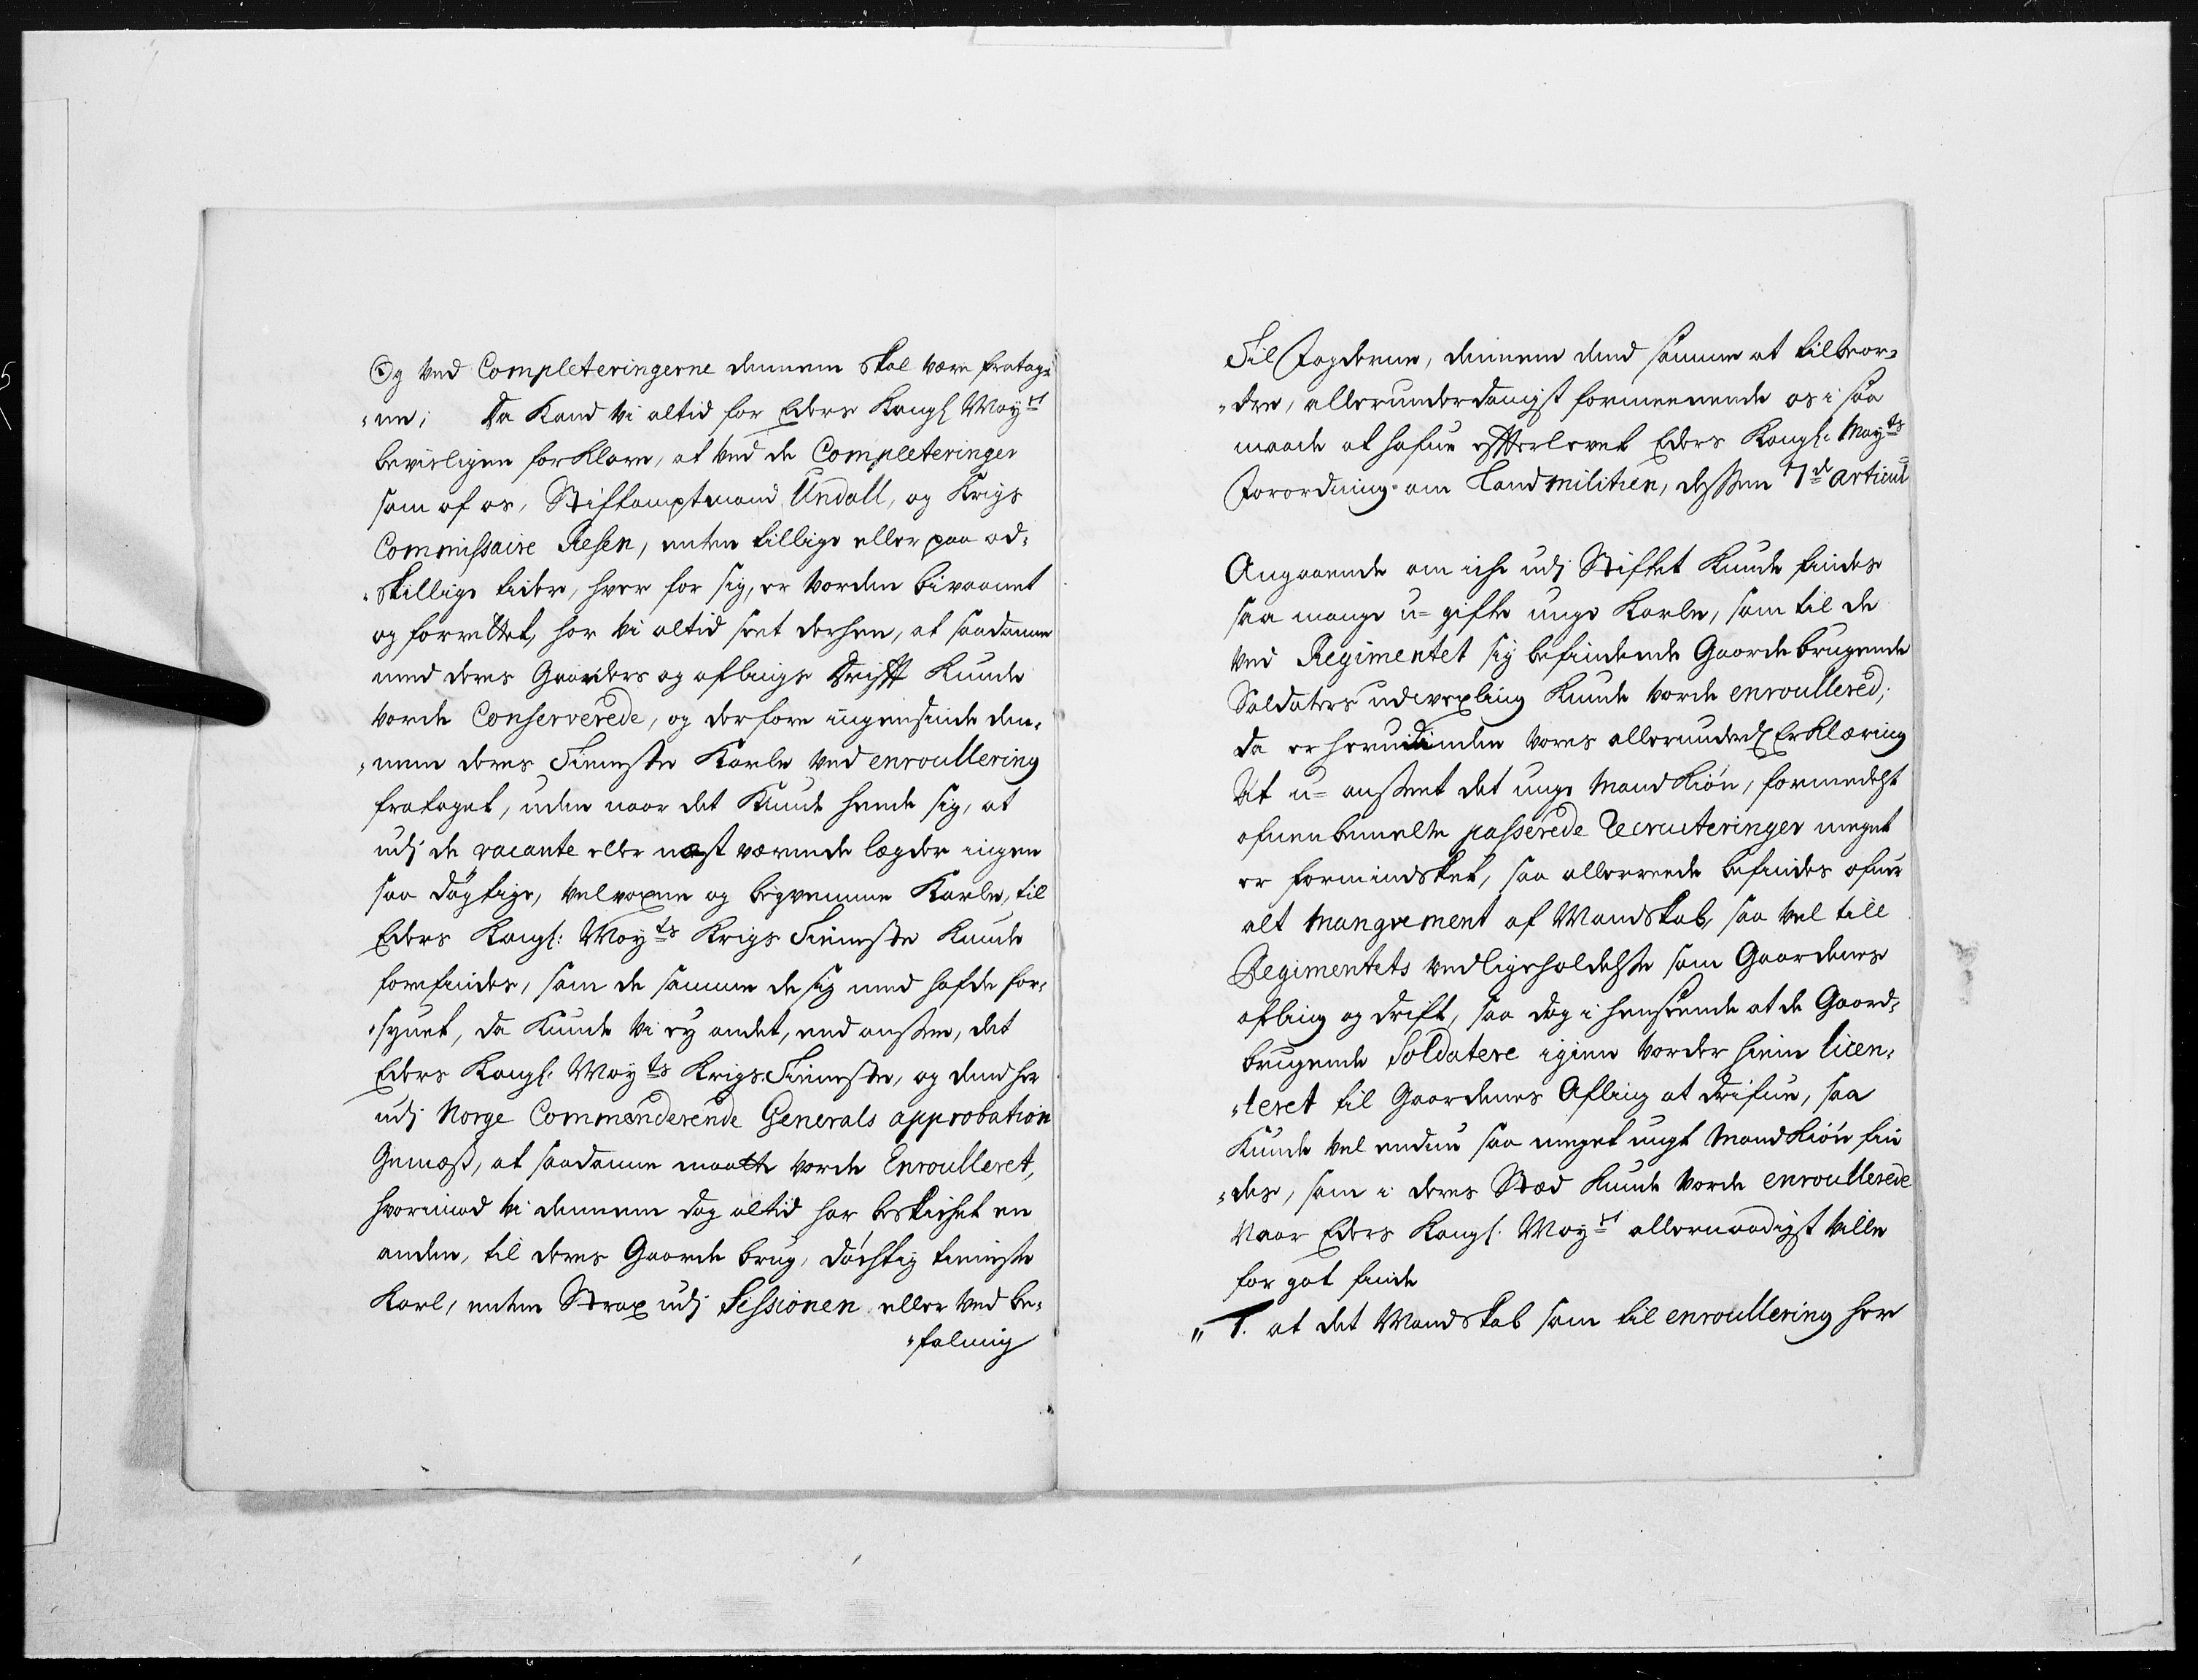 Og ved Completeringerne dennem skal være fratag-
"ne; Da Kand vi altid for Eders Kongl May:tt
bevisligen forklare, at ved de Completeringer
som af os, Stiftamptmand Undall, og Krigs
Commissaire Resen, enten tillige eller paa ad-
"skillige tider, hver for sig, er vorden bivaanet
og forrettet, har vi altid seet derhen, at saadanne
med deres Gaarders og aflings Drifft kunde
vorde Conserverede, og derfore ingensinde den-
"nem deres Tieneste Karle ved enroullering
frataget, uden naar det kunde hende sig, at
udj de vacante eller næst værende lægder ingen
saa døgtige, velvoxne og beqvemme Karle, til
Eders Kongl: May:ts Krigs Tieneste kunde
forefindes, som de samme de sig med hafde for-
"synet, da kunde vi ey andet, end ansee, det
Eders Kongl. May:ts Krigs Tieneste, og dend her
udj Norge Commanderende Generals approbation
Gemæs, at saadanne maatte vorde Enroulleret,
hvorimod vi dennem dog altid har beskichet en
anden, til deres Gaarde brug, døchtig tieneste
Karl, enten Strax udj Sessionen eller ved be-
"faling
Til Fogderne, dennem dend samme at tilbeor-
"dre, allerunderdanigst formeenende os i saa
maade at hafve efterlevet Eders Kongl: May:ts
Forordning om Land militien, dessen 7de articul
Angaaende om iche udj Stiftet kunde findes
saa mange u= gifte unge Karle, som til de
ved Regimentet sig befindende Gaardebrugende
Soldaters udvexling kunde vorde enroullered;
da er herudinden vores allerunderd Erklæring
At u= anseet det unge Mandkiøn, formedelst
ofvenbemelte passerede recruteringer meget
er formindsket, saa allereede befindes ofver
alt mangvement af Mandskab, saa vel till
Regimentets vedligeholdelse som Gaardenes
afling og drift, saa dog i henseende at de Gaard-
brugende Soldatere igien vorder hiem licen-
"teret til Gaardenes Afling at drifve, saa
kunde vel endnu saa meget ungt Mandkiøn fin
"des, som i deres Stæd kunde vorde enroullerede
Naar Eders Kongl. May:tt allernaadigst ville
for got finde
" 1. at det Mandskab som til enroullering her